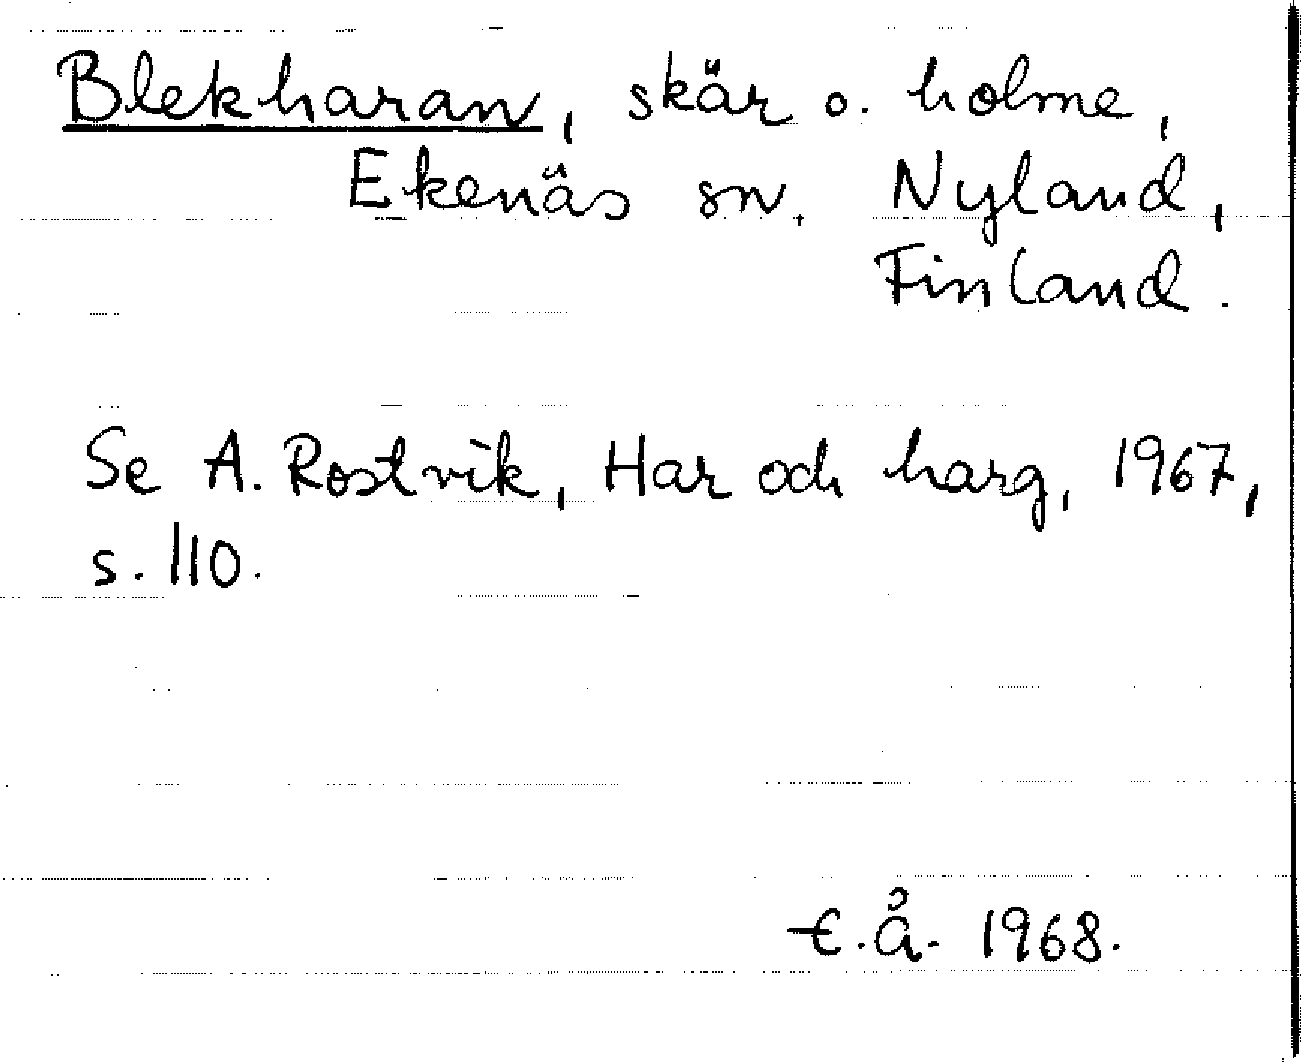 Blekharan, skär o. holme,
Ekenäs sn. Nyland,
Finland.
Se A. Rostvik, Har och harg, 1967,
s. 110.
E.Å. 1968.